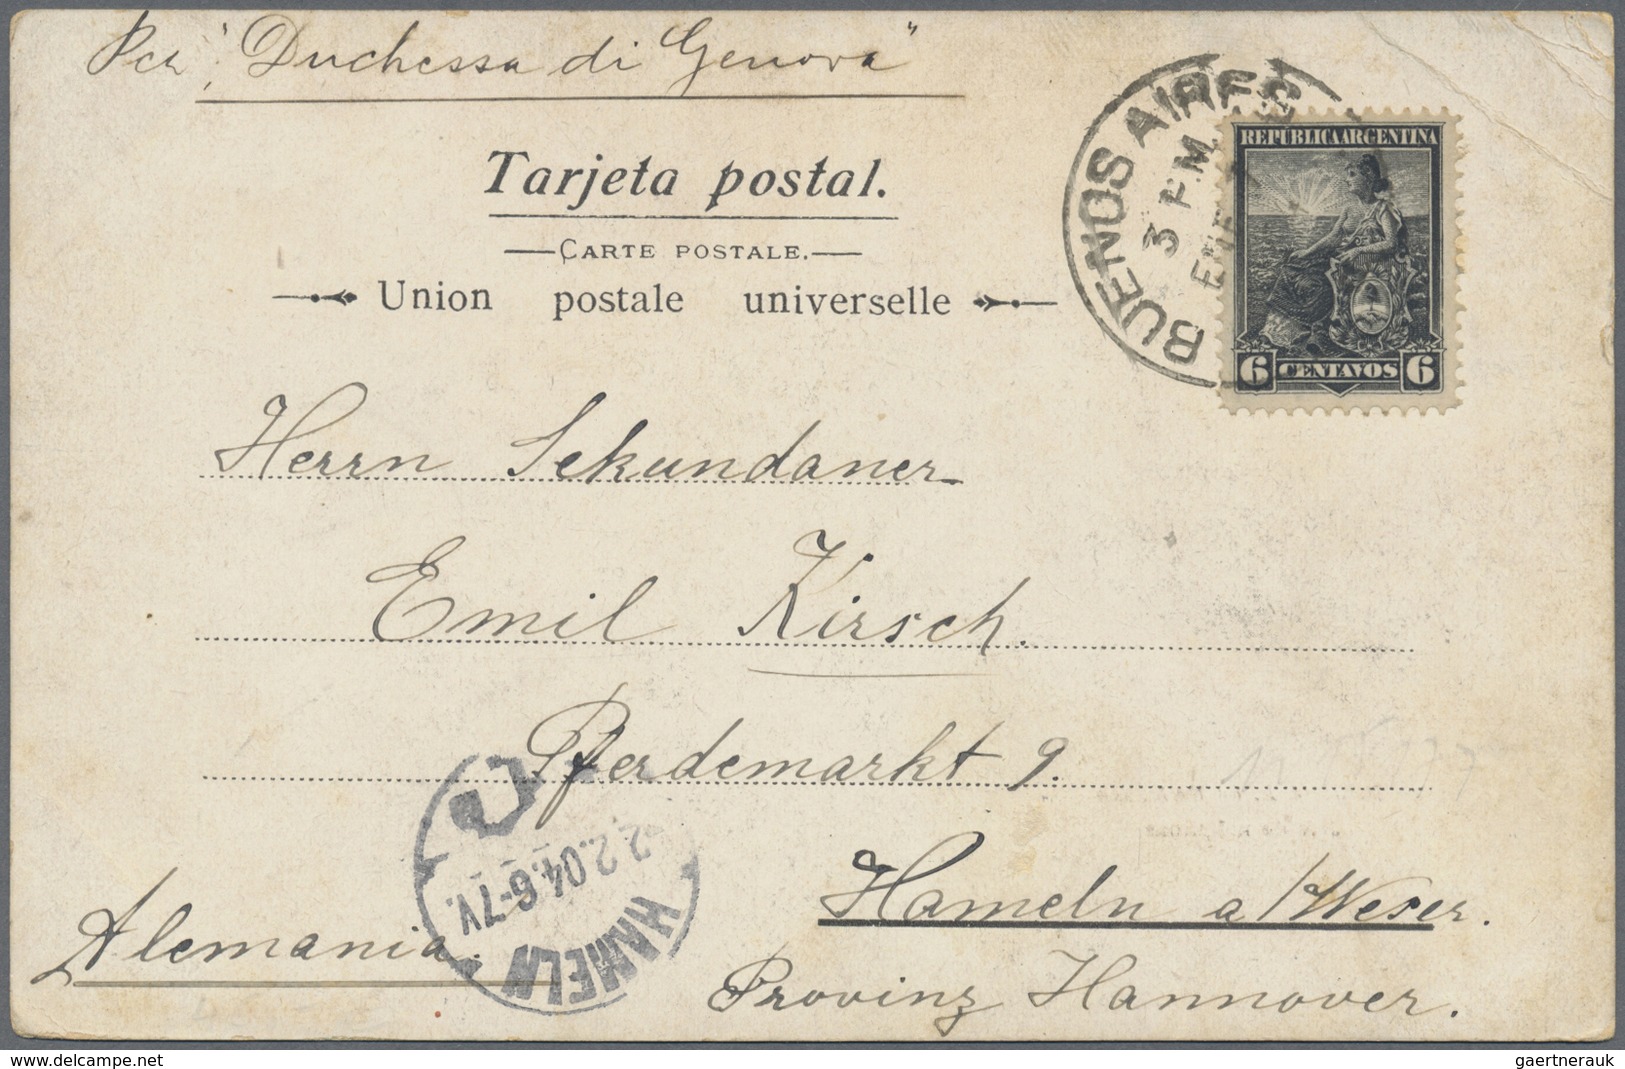 Per "Duchessa di Genova"
Tarjeta postal.
CARTE POSTALE.
Union postale universelle
BUENOS AIRES
3 P.M.
REPÚBLICA ARGENTINA
6 CENTAVOS 6
Herrn Sekundaner
Emil Kirsch.
Pferdemarkt 9.
Hameln a/Weser.
Provinz Hannover.
Alemania.
HAMELN
2.2.04.6-7V.
www.delcampe.net
gaertnerauk